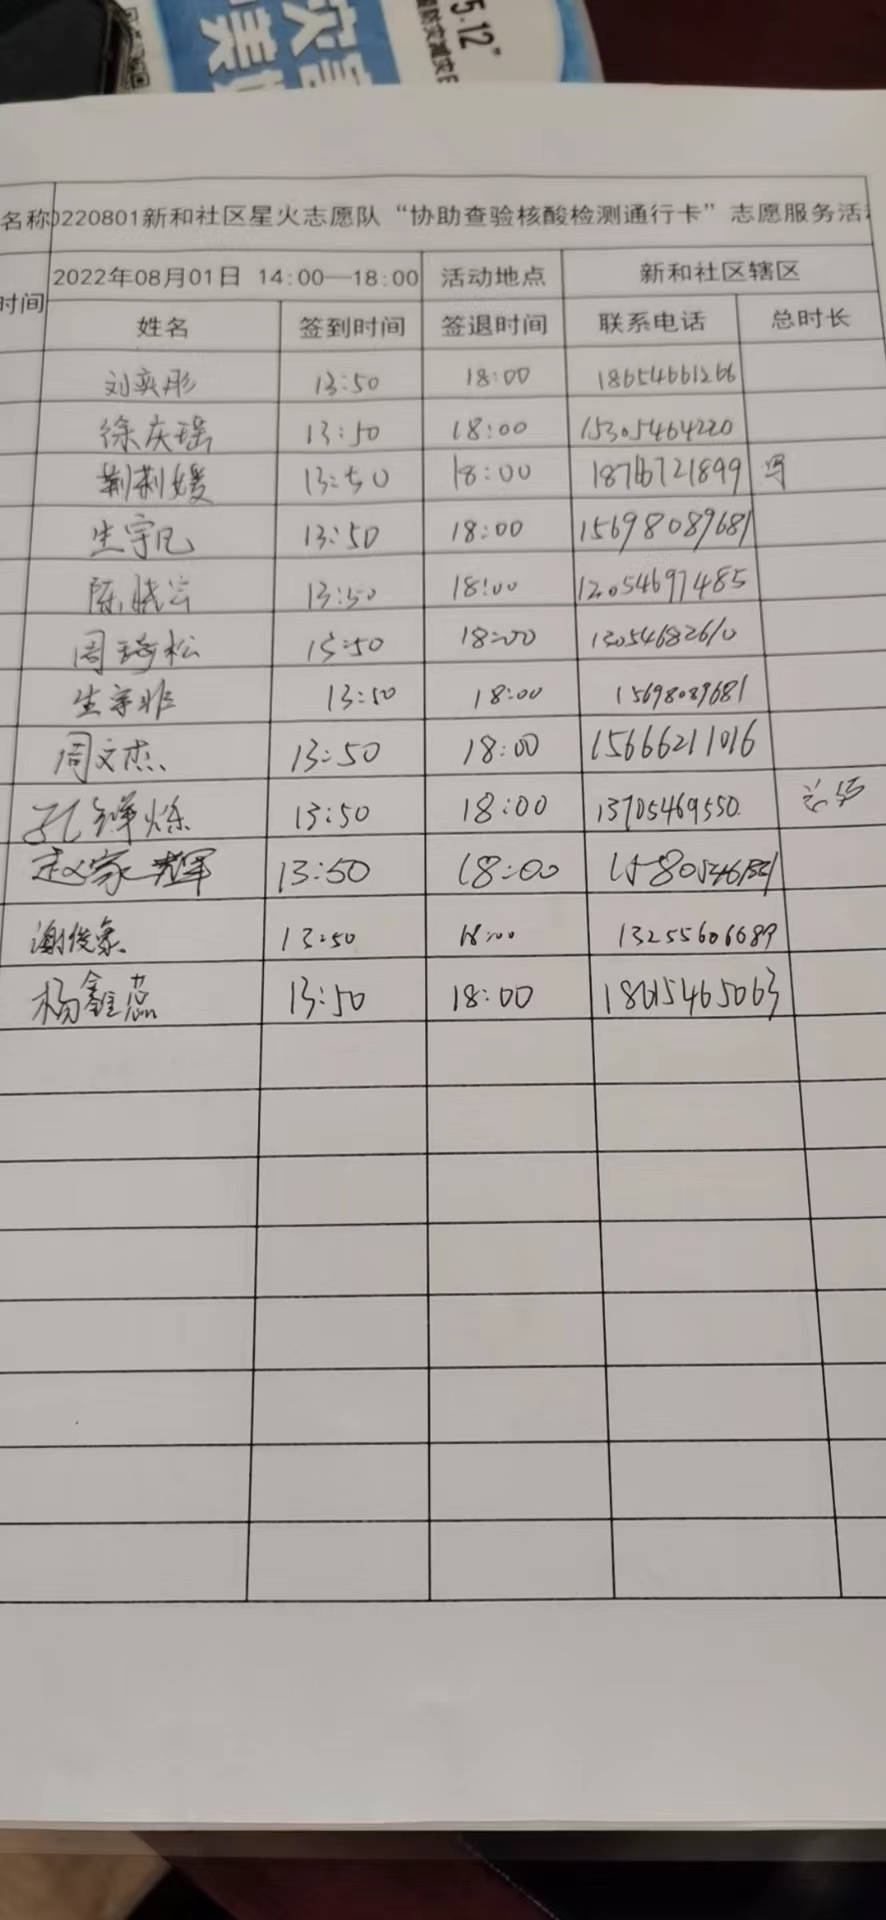 5·12"
名称 0220801新和社区星火志愿队“协助查验核酸检测通行卡”志愿服务活
时间 2022年08月01日 14:00—18:00 活动地点 新和社区辖区
姓名 签到时间 签退时间 联系电话 总时长
刘奕彤 13:50 18:00 18654661266
徐庆瑶 13:50 18:00 15305464220
荆莉媛 13:50 18:00
生宇凡 13:50 18:00 15698089681
陈晓云 13:50 18:00
周琦松 13:50 18:00 13054682610
生宇非 13:50 18:00 15698089681
周文杰 13:50 18:00 15666211016
孔铎烁 13:50 18:00 13705469550
赵家辉 13:50 18:00
谢俊豪 13:50 18:00 13255606689
杨鑫蕊 13:50 18:00 18615465063